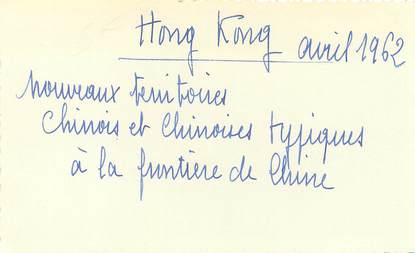 Hong Kong avril 1962
nouveaux territoires
Chinois et Chinoises typiques
à la frontière de Chine